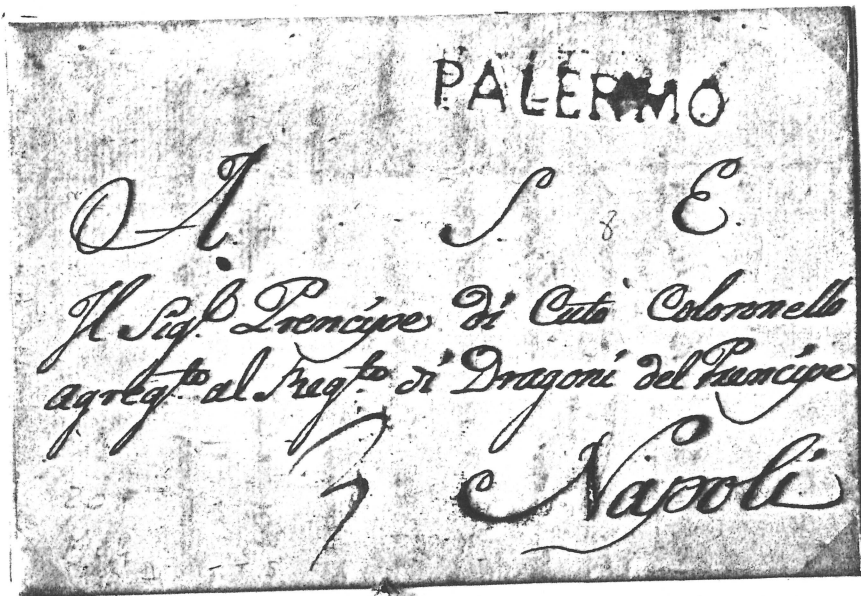 PALERMO
A. S. 8 E.
Il Sig.r Prencipe di Cutò Coloronello
agreg.to al Reg.to di Dragoni del Prencipe
Napoli